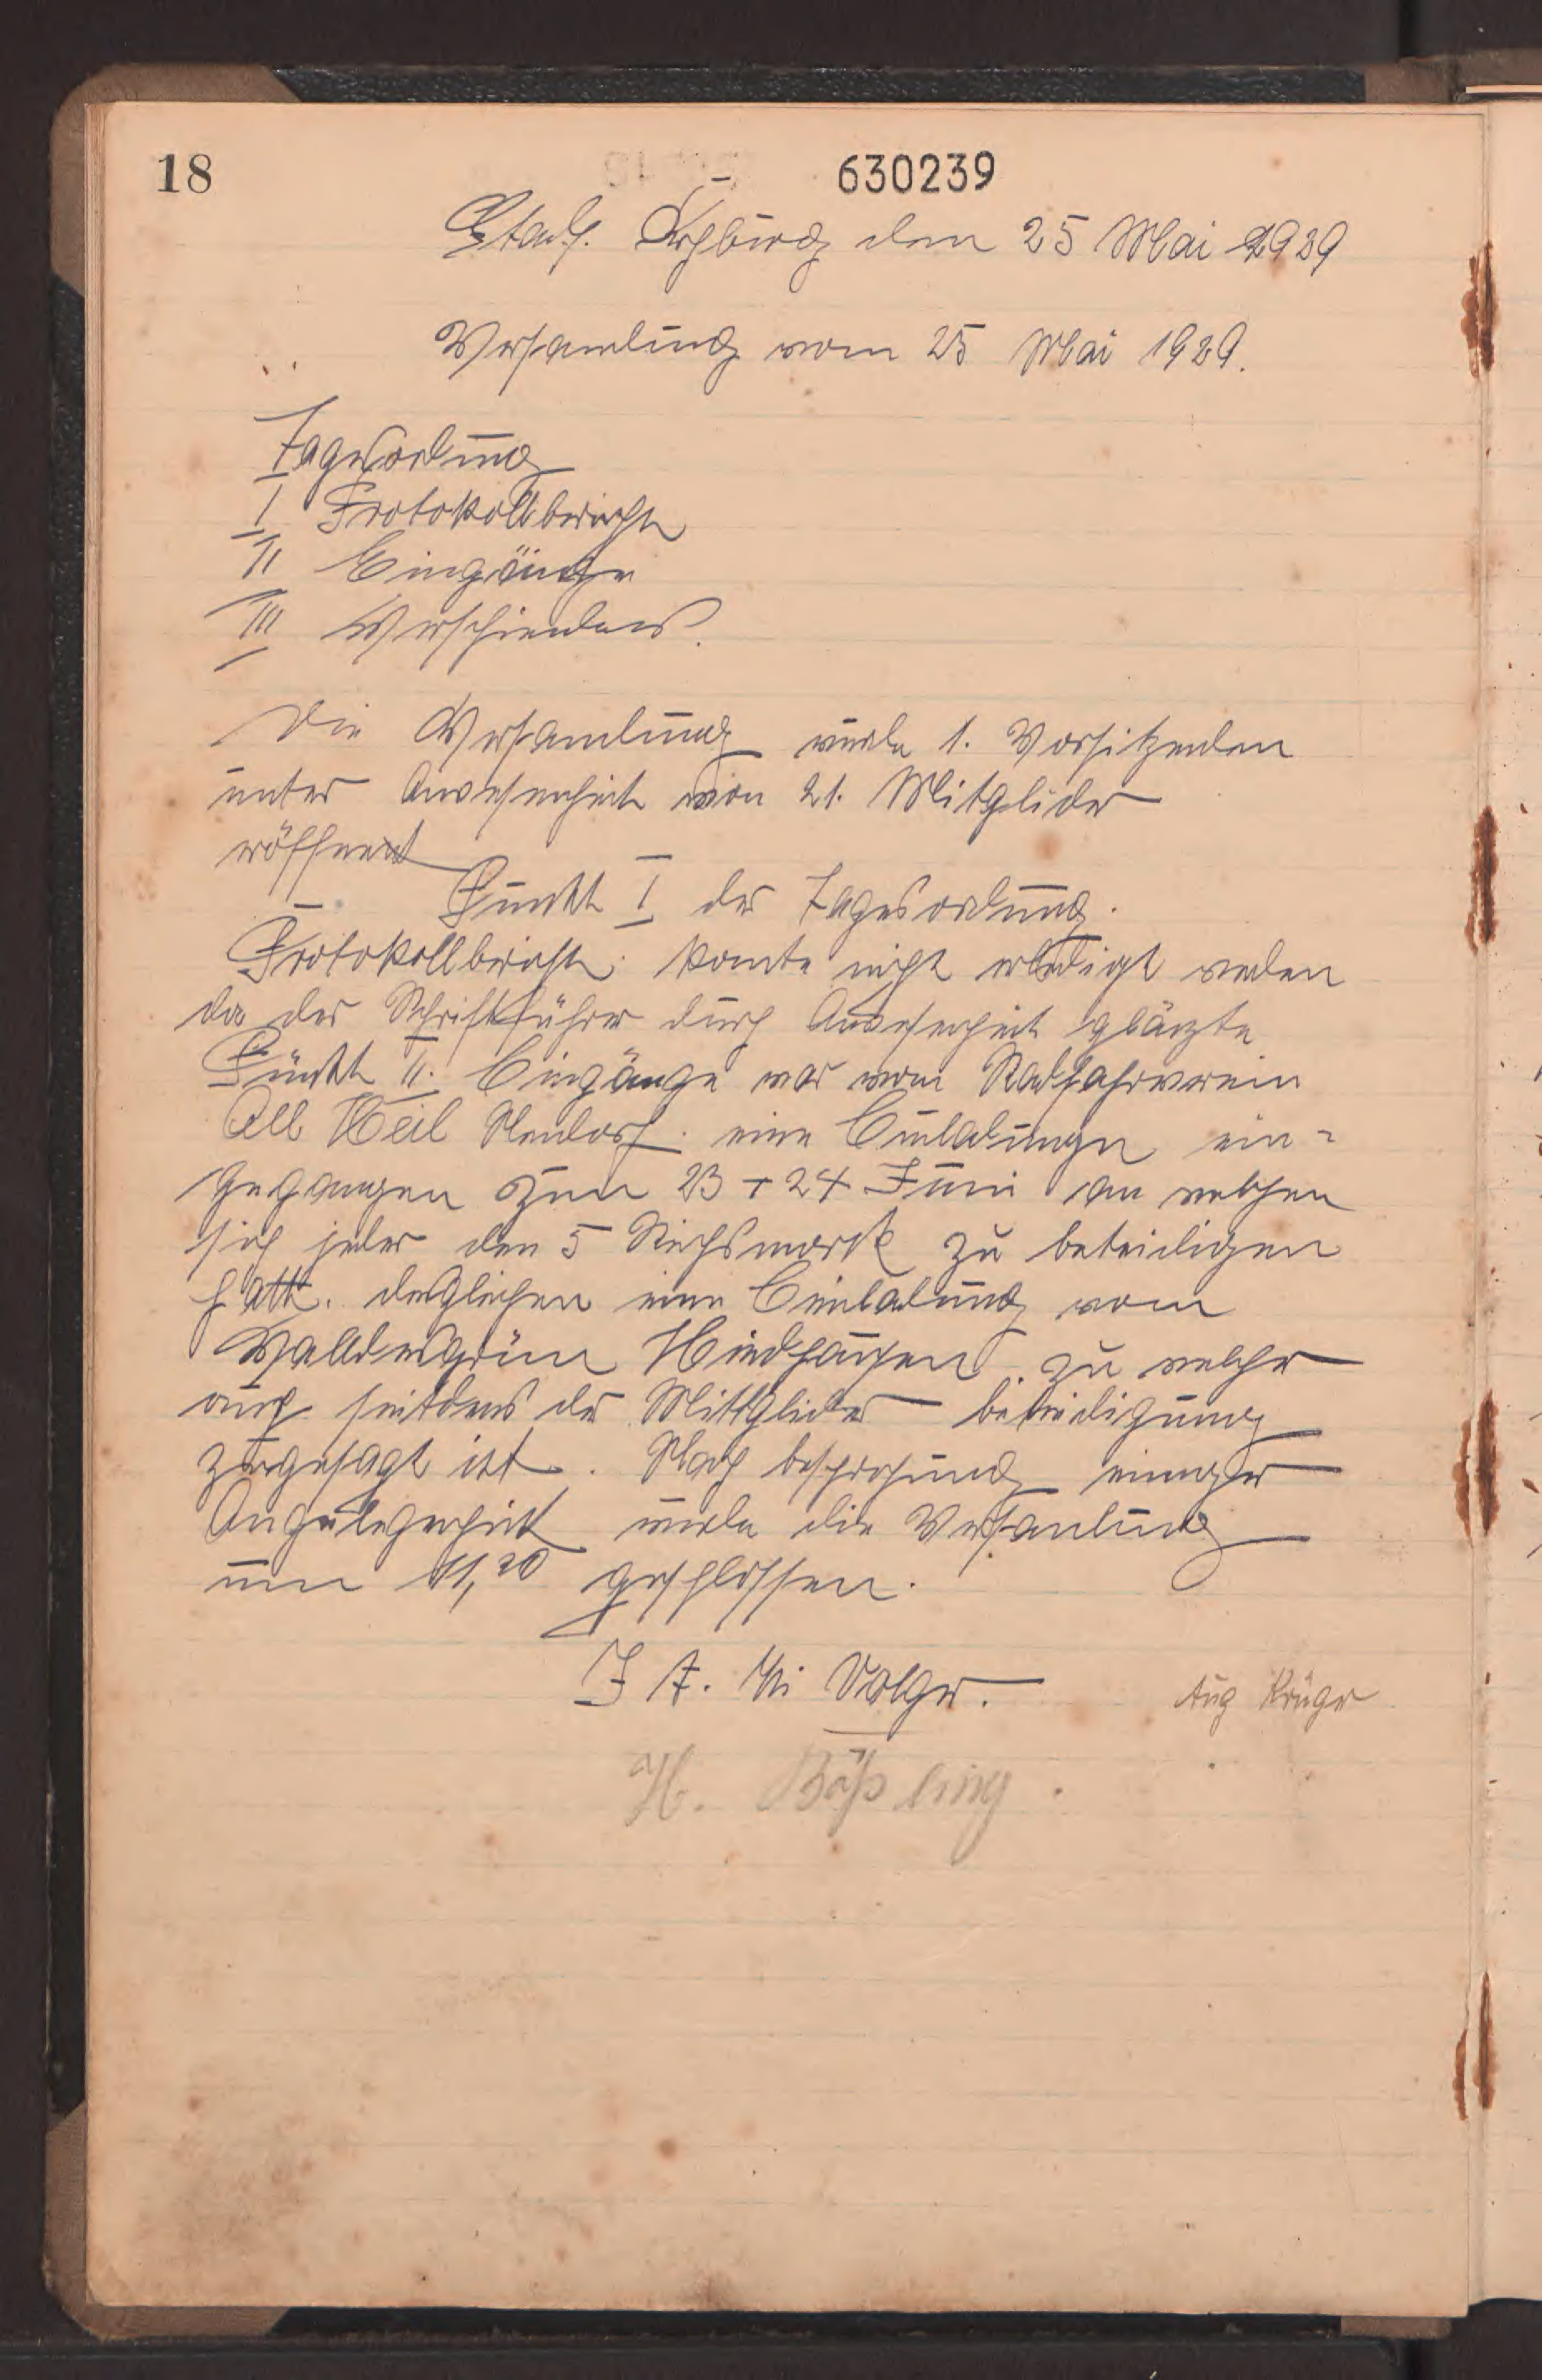 18
630239
Stadth. Rehburg den 25 Mai 1929
Versamlung vom 25 Mai 1929.
Tagesordung
I Protokollbericht
II Eingänge
III Verschiendens.
Die Versamlung wurde 1. Vorsitzenden
unter Anwesenheit von 21. Mitglider
eröffnent
Punkt I der Tagesordung.
Protokollbericht. konte nicht erledigt werden
da der Schriftführer durch Anwesenheit glänzte
Punkt II. Eingänge war vom Radfahrverein
All Heil eine Einladungen ein-
gegangen zum 23 + 24 Juni an welchen
sich jeder den 5 Reichsmark zu beteidigen
hatt. desgleichen eine Einladung vom
Walldesgrün zu welcher
auch seitdens der Mittglider beteidigung
zugesagt ist. Nach besprechung einiger
Angelegenheit wurde die Versamlung
um 11,20 geschlossen.
I A. Volger.
Aug Krüger
H. Bößling.